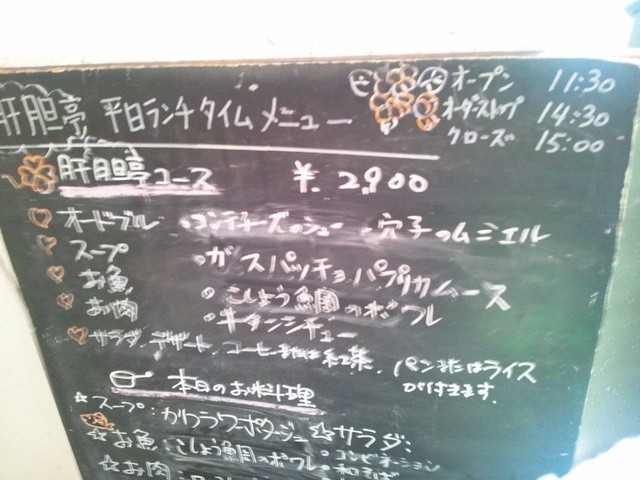 肝胆亭 平日ランチタイムメニュー
オープン 11:30
オーダーストップ 14:30
クローズ 15:00
肝胆亭コース ¥2900
オードブル ・コンテチーズのシュー ・穴子のムニエル
スープ ・ガスパッチョ パプリカムース
お魚 ・こしょう鯛のポワレ
お肉 ・牛タンシチュー
サラダ、デザート、コーヒーまたは紅茶、パンまたはライスが付きます。
本日のお料理
☆スープ:カリフラワーポタージュ
☆お魚:こしょう鯛のポワレ
☆お肉:
☆サラダ:
・コンビネーション
・和そば